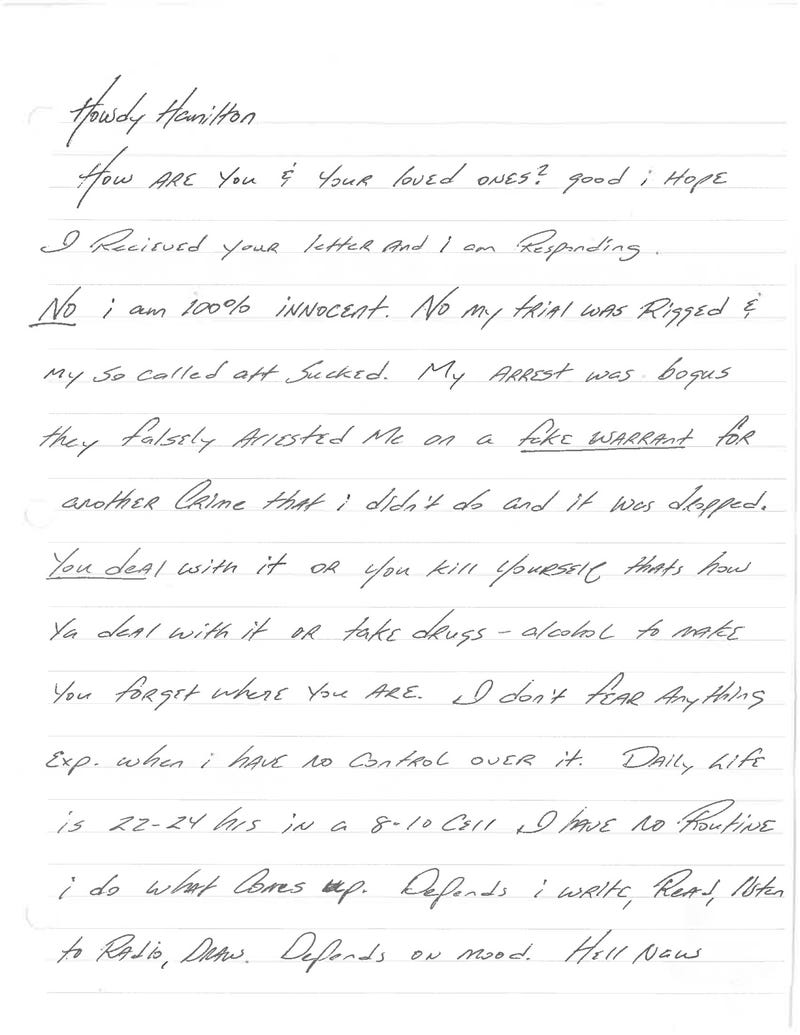 Howdy Hamilton
How ARE you & your loved ones? good i Hope
I Recieved your letter And I am Responding.
No i am 200% innocent. No my trial was Rigged &
my so called att sucked. My ARREST was bogus
they falsely Arrested Me on a fake warrant for
another Crime that i didn't do and it was dropped.
You deal with it or you kill yourself thats how
Ya deal with it or take drugs - alcohol to make
You forget where You ARE. I don't fear Anything
Exp. when i have no control over it. Daily life
is 22-24 hrs in a 8-10 Cell I have no Routine
i do what Comes up. Depends i write, Read, listen
to Radio, Draw. Depends on mood. Hell Naws